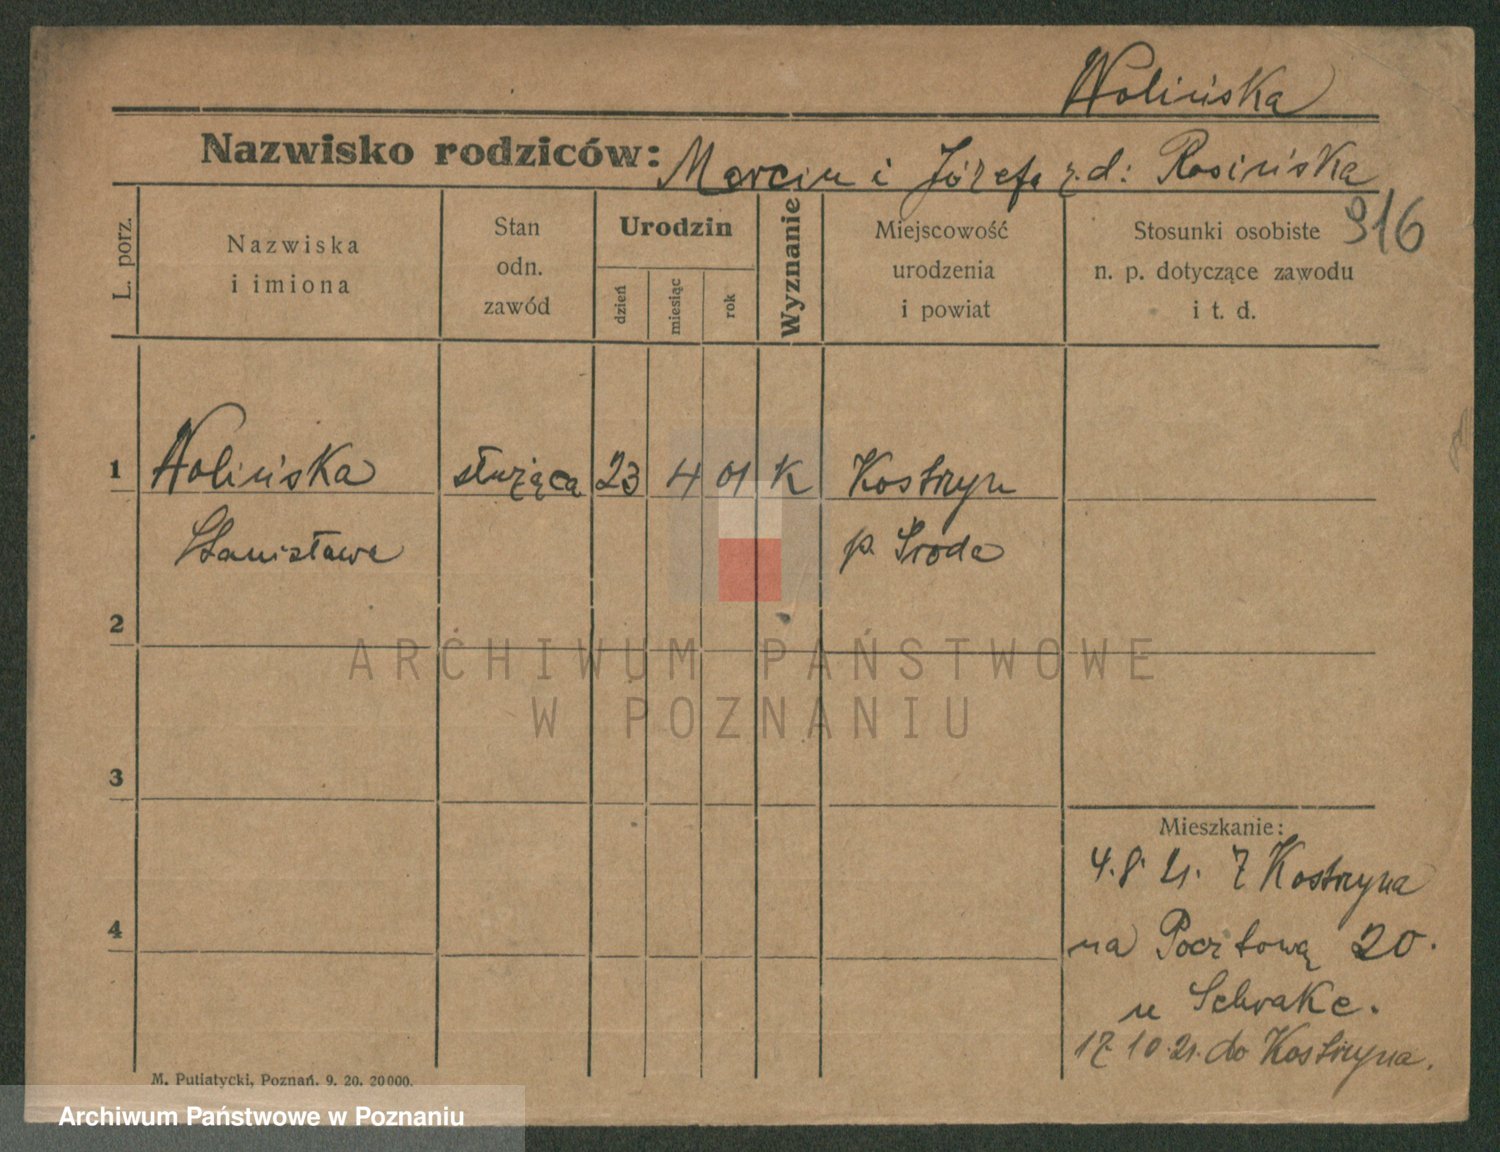 Wolińska
Nazwisko rodziców: Marcin i Józefa z d: Rosińska
916
L. porz.
Nazwiska
i imiona
Stan
odn.
zawód
Urodzin
dzień
miesiąc
rok
Wyznanie
Miejscowość
urodzenia
i powiat
Stosunki osobiste
n. p. dotyczące zawodu
i t. d.
1 Wolińska służąca 23 4 01 K Kostrzyn
Stanisława p. Środa
2
3
4
Mieszkanie:
4.8.21. z Kostrzyna
na Pocztową 20.
u Schrake.
17.10.21. do Kostrzyna.
M. Putiatycki, Poznań. 9. 20. 20000.
ARCHIWUM PAŃSTWOWE
W POZNANIU
Archiwum Państwowe w Poznaniu